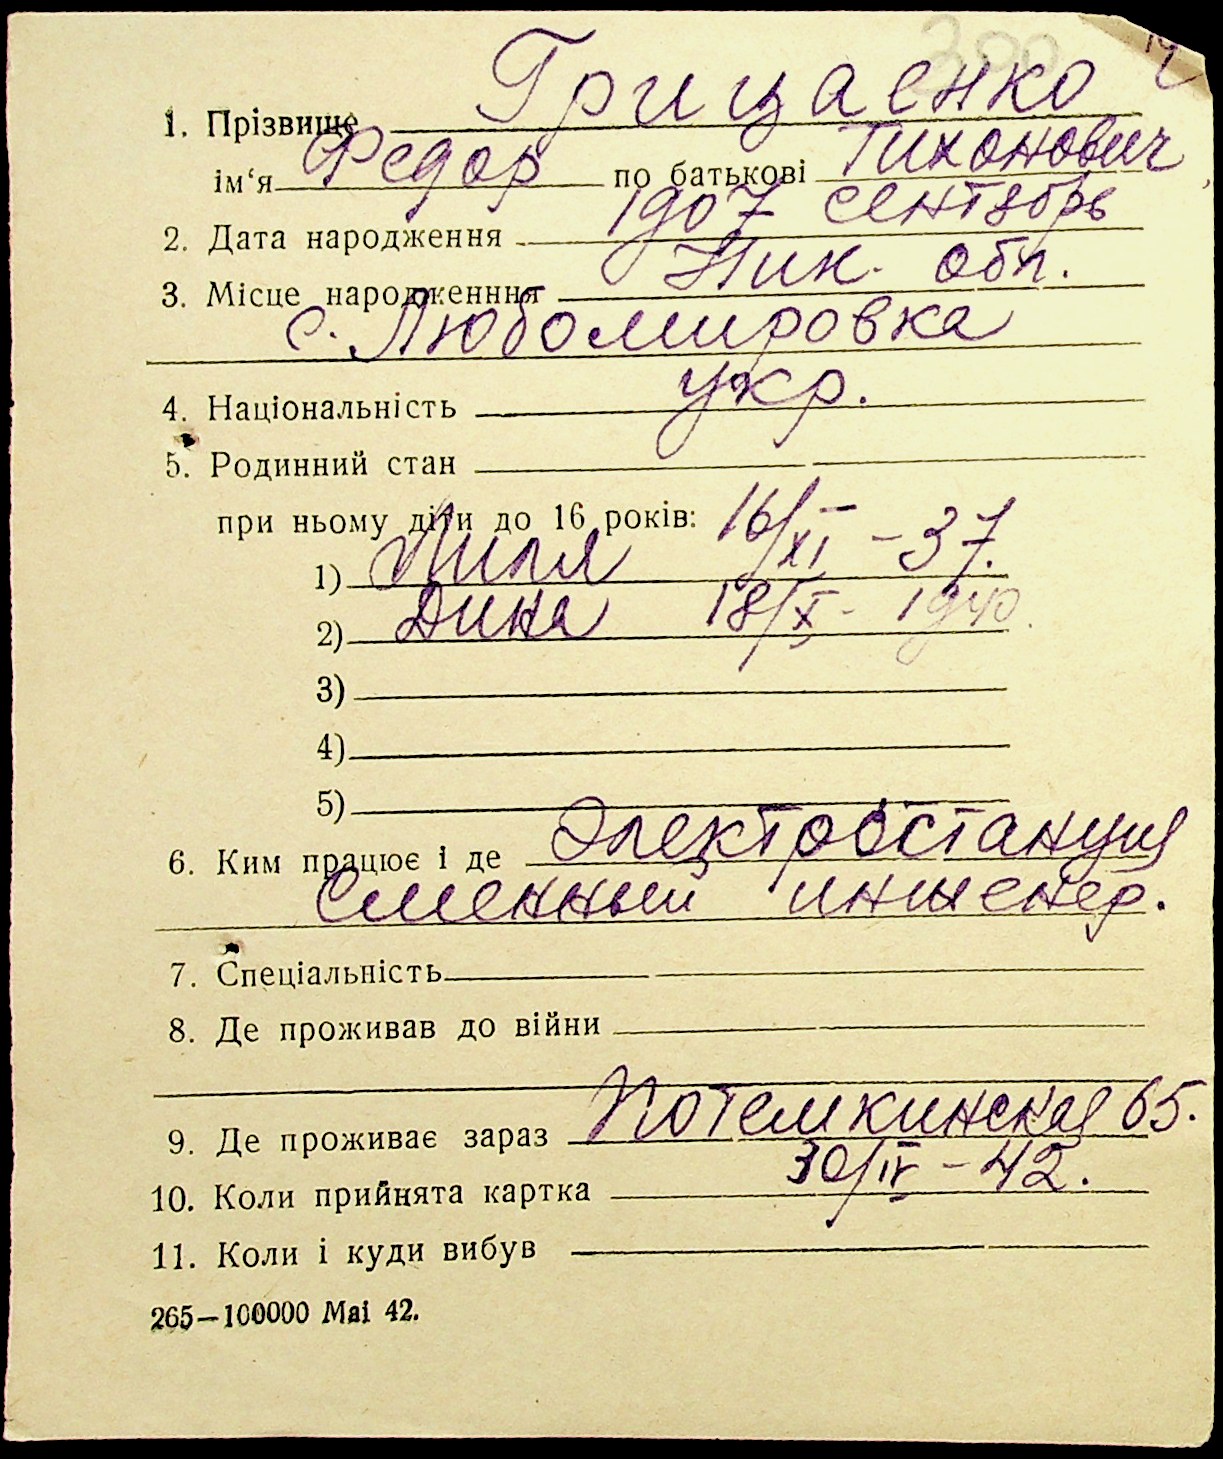 300 14
1. Прізвище Грицаенко
ім‘я Федор по батькові Тихонович
2. Дата народження 1907 сентябрь
3. Місце народженння Ник. обл.
с. Любомировка
4. Національність укр.
5. Родинний стан
при ньому діти до 16 років:
1) Лиля 16/XI - 37.
2) Дина 18/X - 1940.
3)
4)
5)
6. Ким працює і де Электростанция
Сменный инженер.
7. Спеціальність
8. Де проживав до війни
9. Де проживає зараз Потемкинская 65.
10. Коли прийнята картка 30/IV - 42.
11. Коли і куди вибув
265—100000 Mai 42.